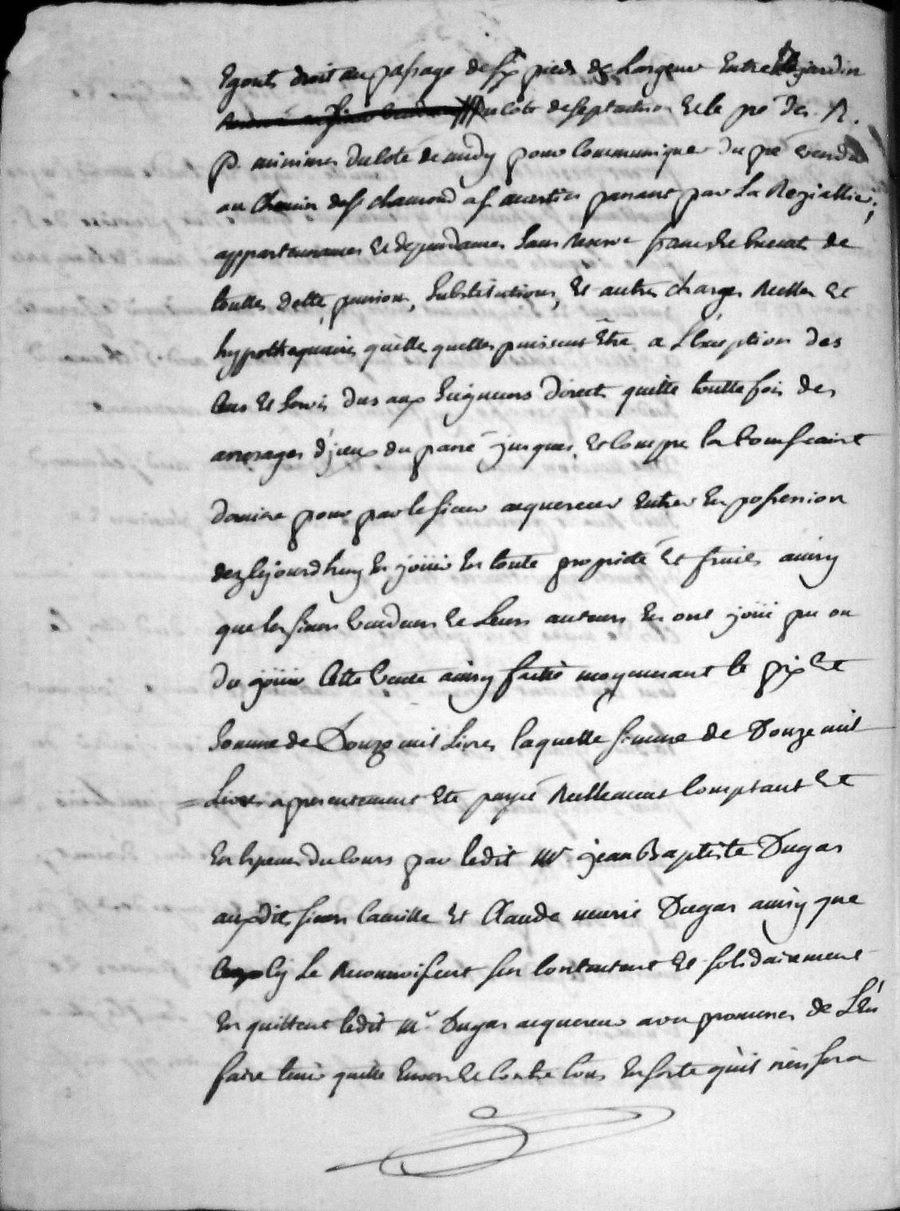 Egouts droit au passage de six pieds de largeur Entre le jardin
du coté de septention Et le pré des R.
P. minimes du coté de midy pour communiquer du pré vendu
au Chemin de st chamond a st martin passant par La
appartenances et dependances Sans reserve franc de de
touttes dette, pension, Substitutions, Et autres charges reelles Et
hypothequaires quelle quelles puissent Être, a L'exeption des
Cens Et Servis dus aux Seigneurs Directs quitte touttefois des
arrerages d'jceux du passé jusques Et compris la St
derniere pour par le sieur acquereur Entrer En possession
dez lejourdhuy En joüir En toute proprieté Et fruits ainsy
que les sieurs vendeurs Et Leurs auteurs En ont joüi pu ou
du joüir Cette vente ainsy faitte moyennant le prix Et
Somme de Douze mil Livres laquelle somme de Douze mil
Livres a presentement Eté payée reellement comptant Et
En Especes du cours par ledit Mr jean Baptiste Dugas
auxdit sieurs Camille Et Claude marie Dugas ainsy que
le reconnoissent s'en contentent Et solidairement
En quittent ledit Mr Dugas acquereur avec promesses de L'en
faire tenir quitte Envers Et Contre tous En sorte qu'il n'en sera